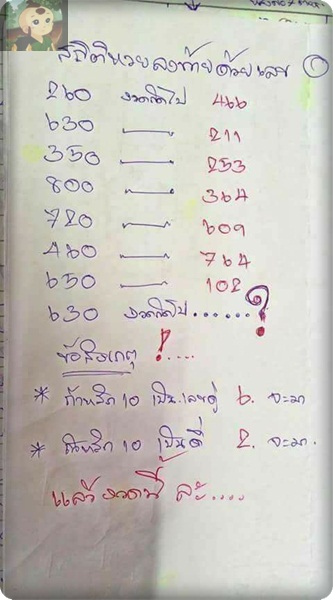 สถิติหวยลงท้ายด้วยเลข 0
260 งวดถัดไป 466
630 —— 211
350 —— 253
800 —— 364
720 —— 609
460 —— 764
650 —— 102
630 งวดถัดไป......?
ข้อสังเกตุ !....
* ถ้าหลัก 10 เป็นเลขคู่ 6. จะมา
* ถ้าหลัก 10 เป็นคี่ 2. จะมา.
แล้วงวดนี้ ล่ะ....